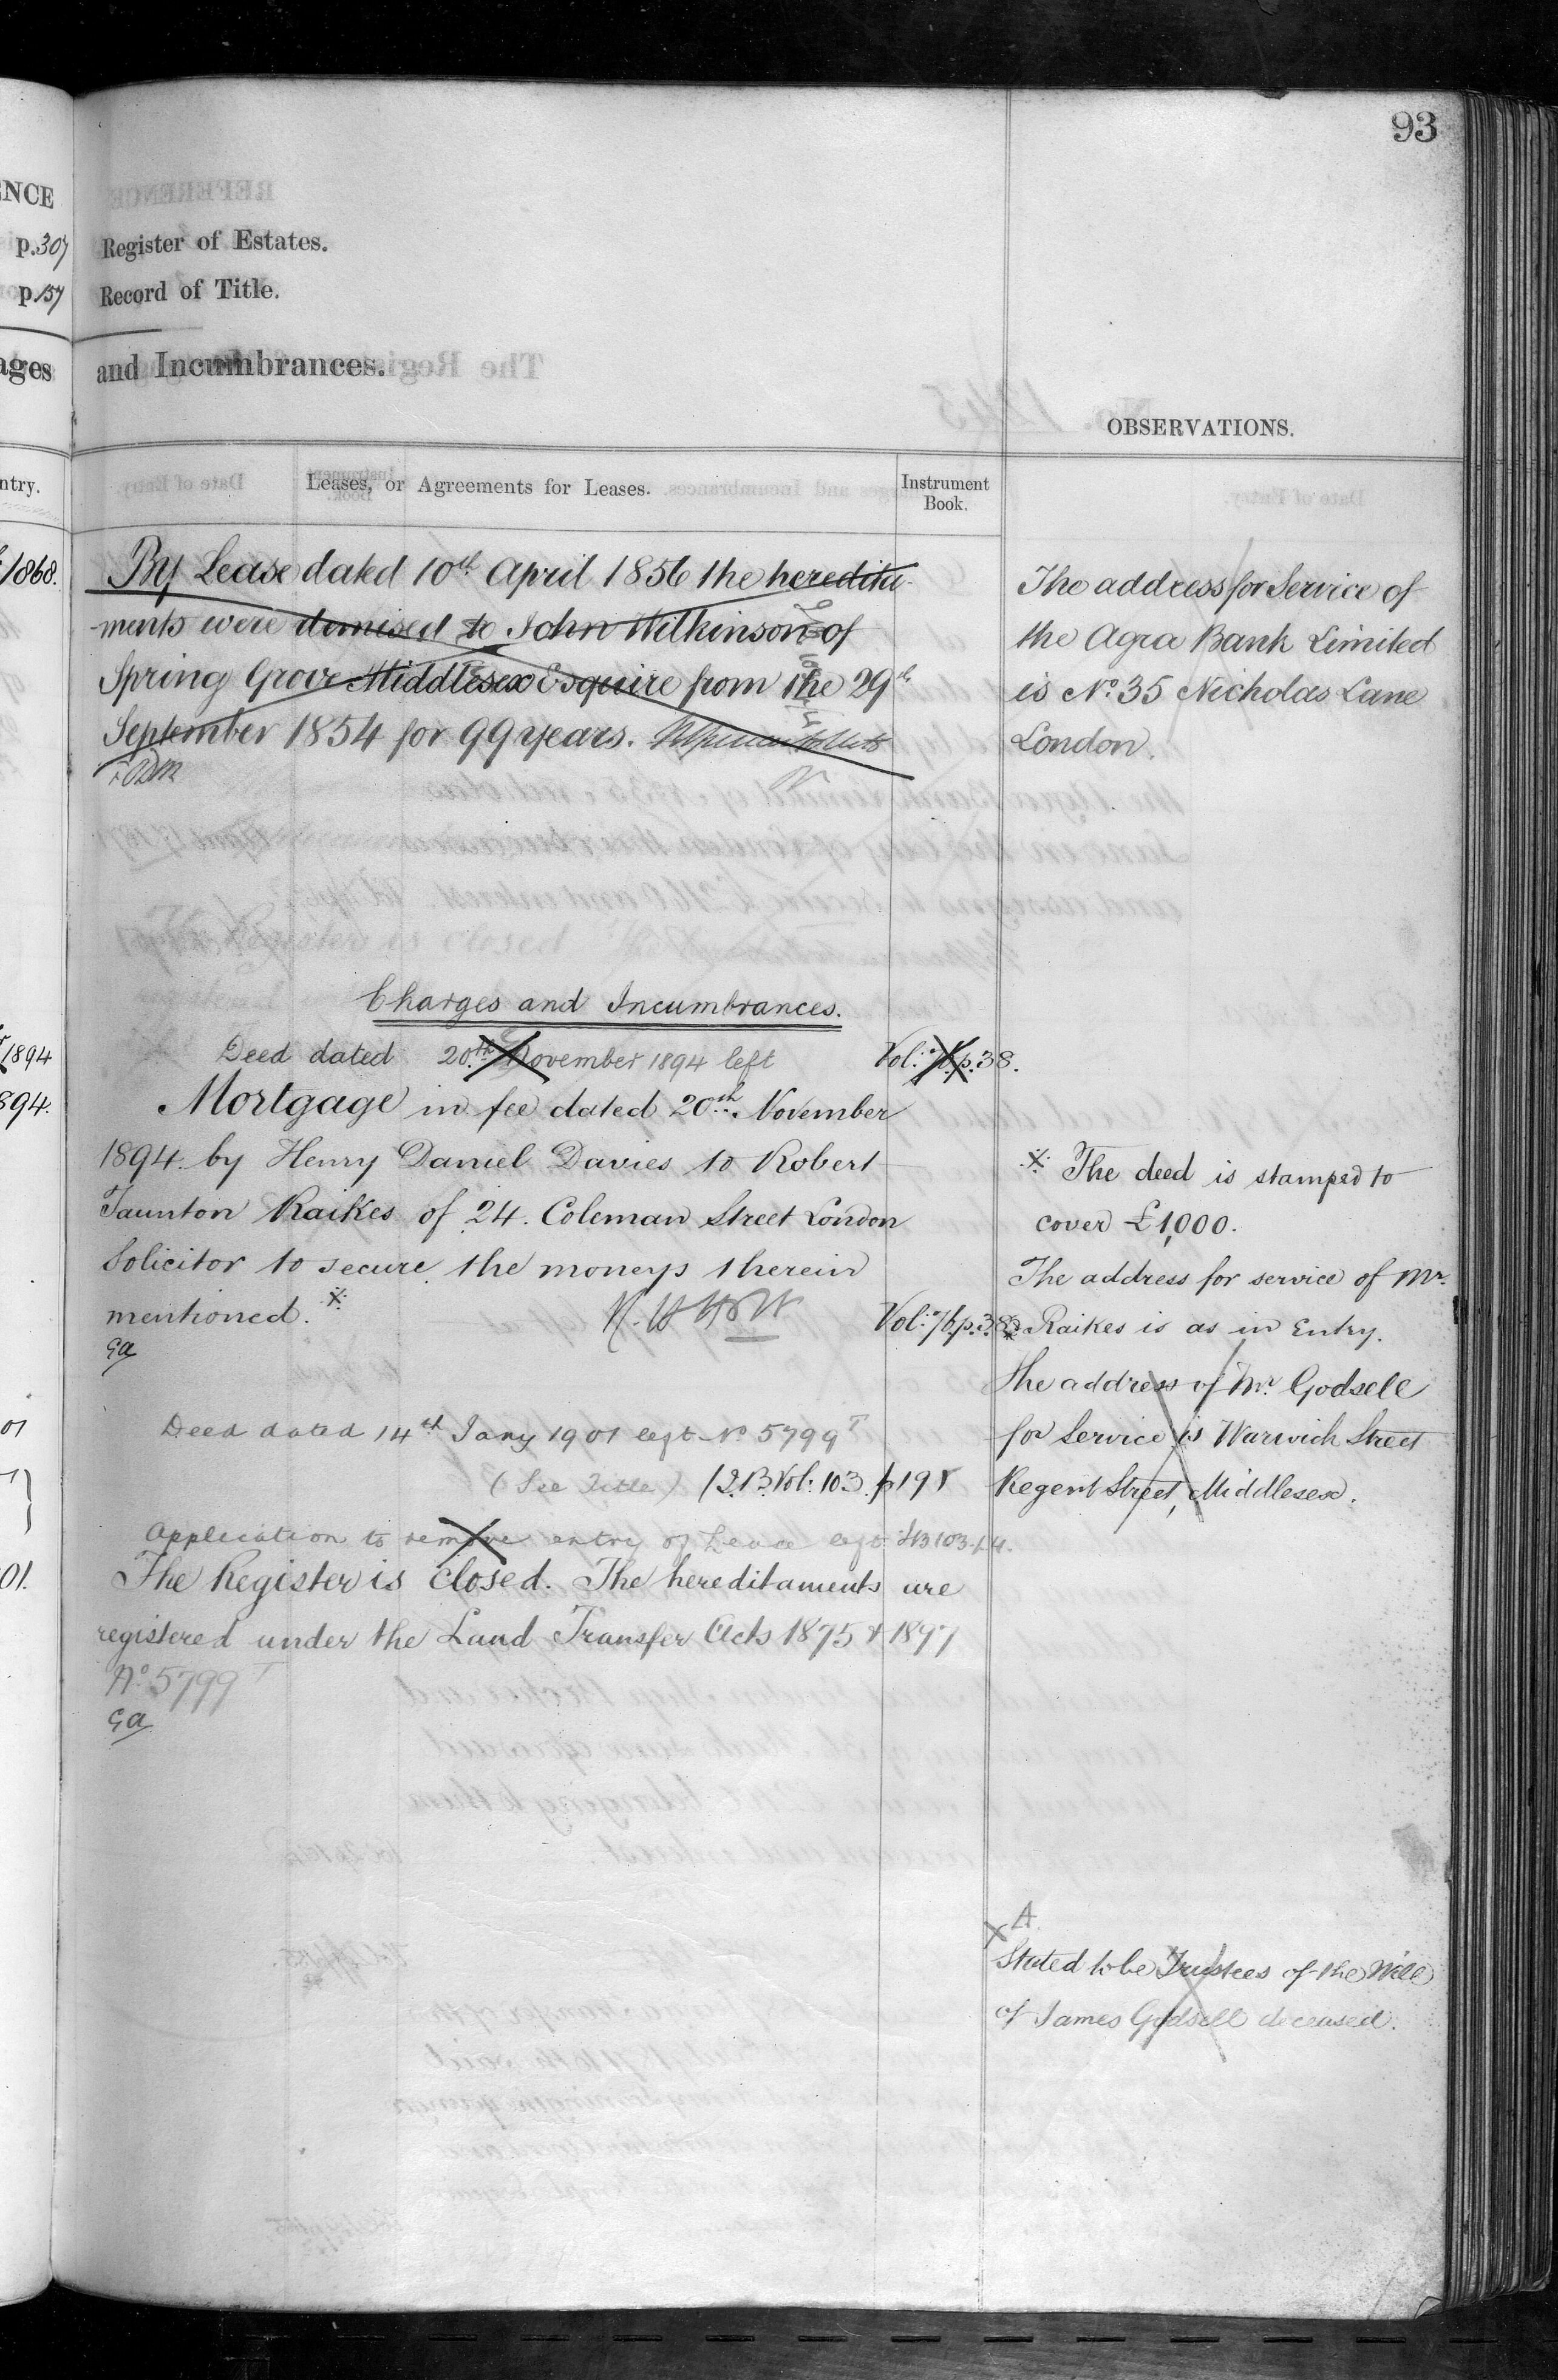 93
ENCE
p. 307
Register of Estates.
p. 157
Record of Title.
ages
and Incumbrances.
OBSERVATIONS.
ntry.
Leases, or Agreements for Leases.
Instrument
Book.
1868.
By Lease dated 10th April 1856 the heredita-
ments were demised to John Wilkinson of
Spring Grove Middlesex Esquire from the 29th
September 1854 for 99 years.
The address for Service of
the Agra Bank Limited
is No. 35 Nicholas Lane
London.
Charges and Incumbrances.
1894
Deed dated 20th November 1894 left
Vol: 76. p. 38.
894.
Mortgage in fee dated 20th November
1894. by Henry Daniel Davies to Robert
Taunton Raikes of 24. Coleman Street London
Solicitor to secure the moneys therein
mentioned.
Vol: 76. p. 38
Ga
The deed is stamped to
cover £1,000.
The address for service of Mr.
Raikes is as in Entry.
the address of Mr. Godsell
for Service is Warwick Street
Regent Street, Middlesex.
01
Deed dated 14th Jany 1901 left No 5799 T
(See Title) Vol: 103. p 198
Application to remove entry of Lease left
01.
The Register is closed. The hereditaments are
registered under the Land Transfer Acts 1875 & 1897
No 5799 T
Ga
A
Stated to be Trustees of the Will
of James Godsell deceased.